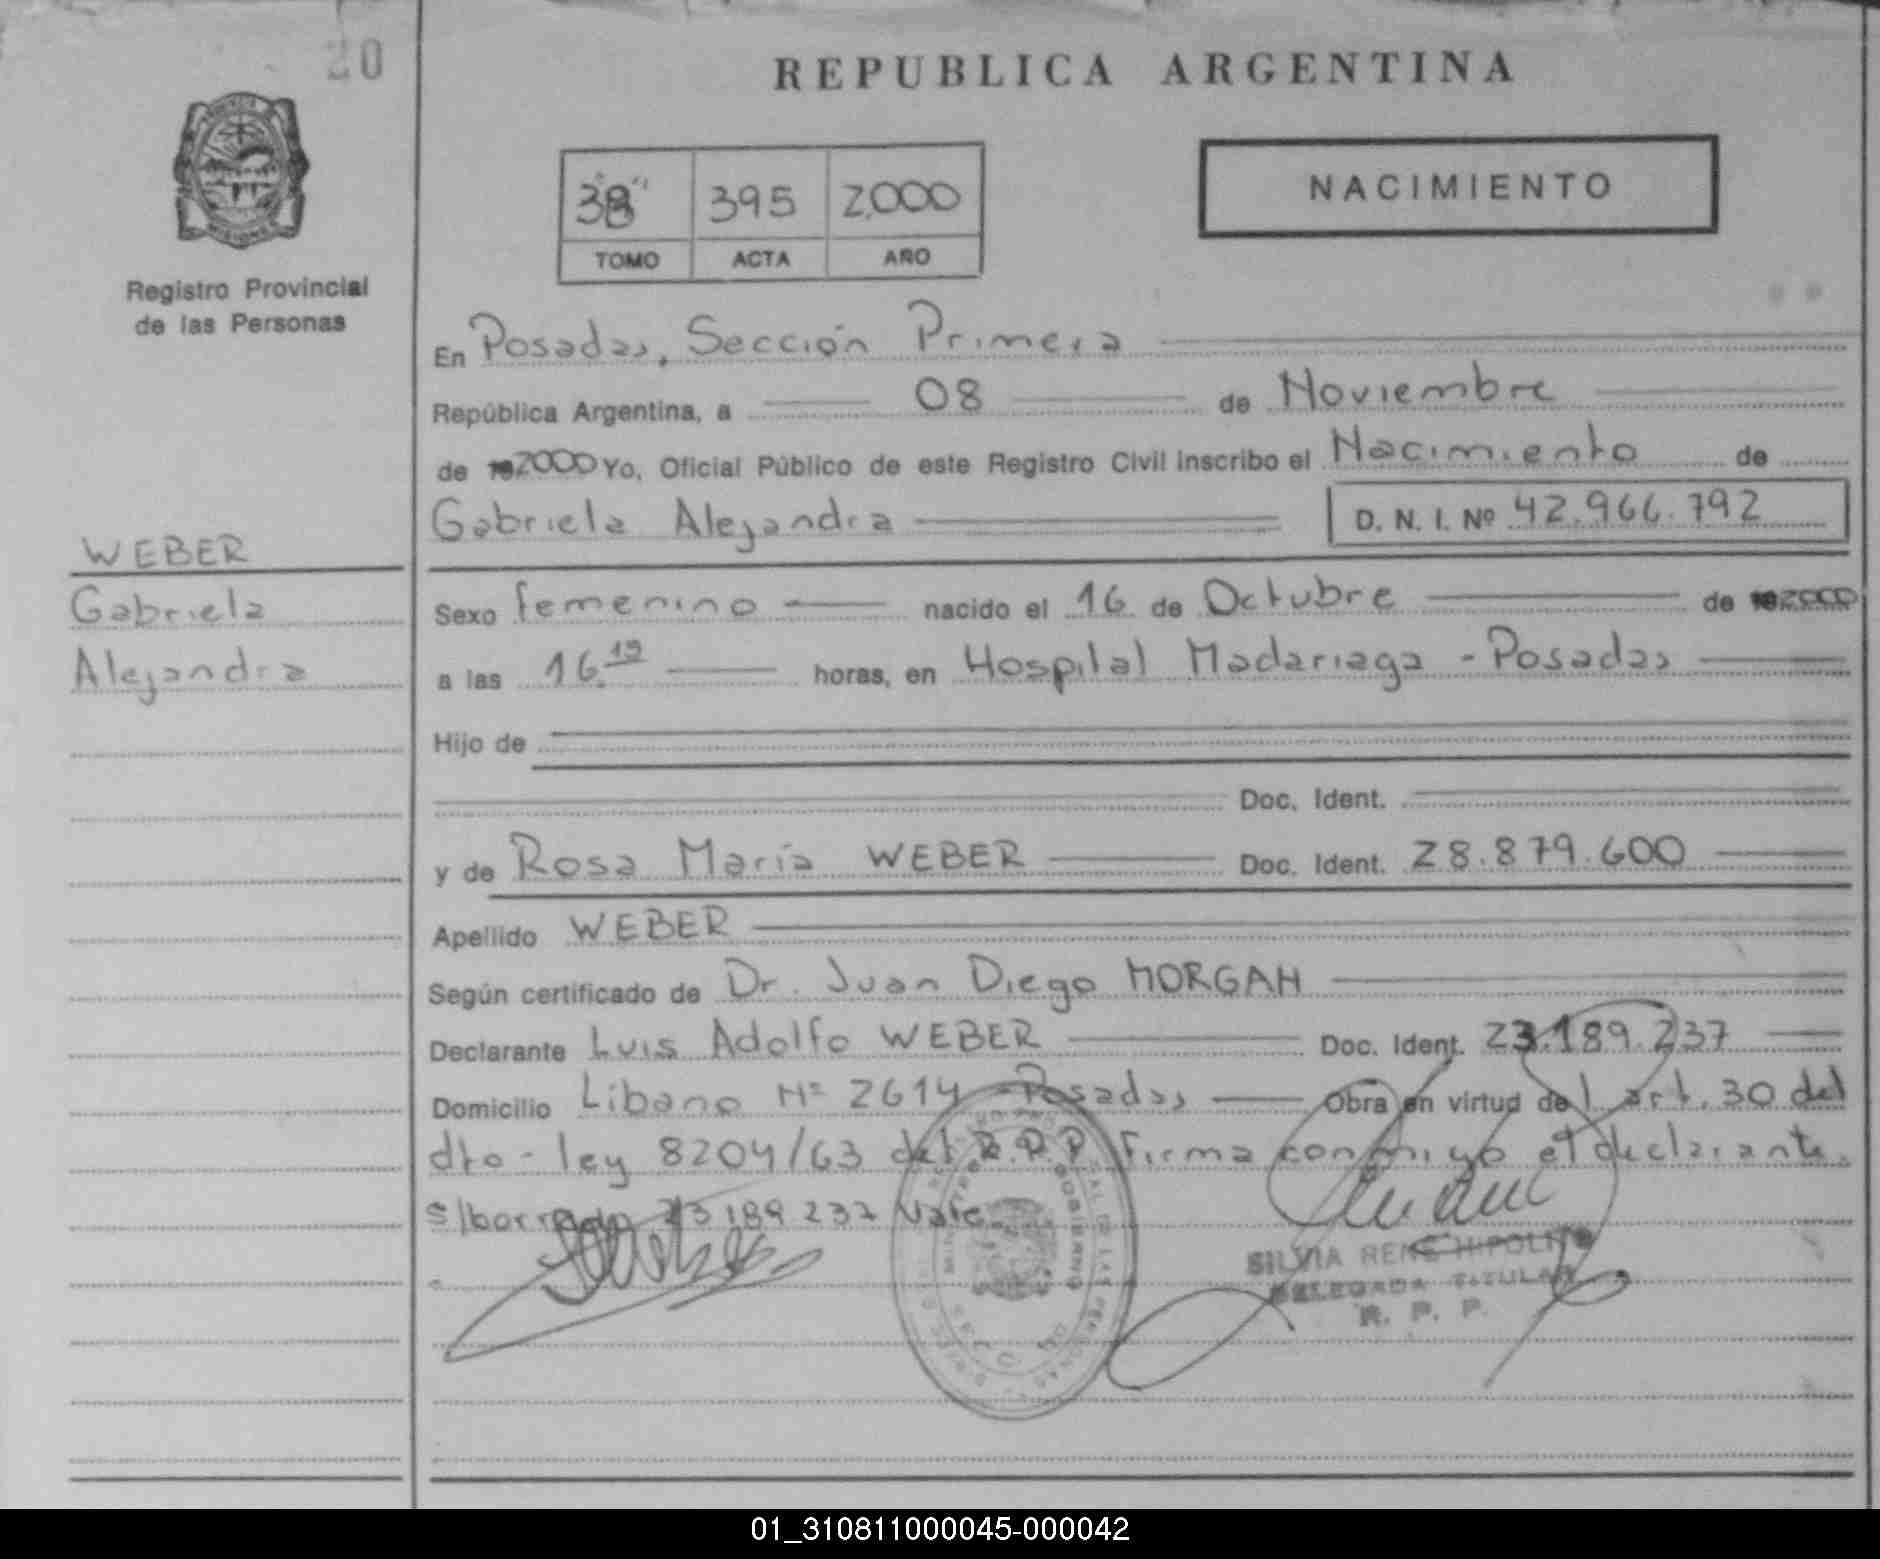 20
REPUBLICA ARGENTINA
MISIONES
Registro Provincial
de las Personas
38" 395 2.000
TOMO ACTA AÑO
NACIMIENTO
En Posadas, Sección Primera
República Argentina, a 08 de Noviembre
de 192000 Yo, Oficial Público de este Registro Civil inscribo el Nacimiento de
Gabriela Alejandra D. N. I. Nº 42.966.792
WEBER
Gabriela
Alejandra
Sexo femenino nacido el 16 de Octubre de 192000
a las 16.19 horas, en Hospital Madariaga - Posadas
Hijo de
Doc. Ident.
y de Rosa María WEBER Doc. Ident. 28.879.600
Apellido WEBER
Según certificado de Dr. Juan Diego MORGAN
Declarante Luis Adolfo WEBER Doc. Ident. 23.189.237
Domicilio Libano Nº 2614 - Posadas Obra en virtud del art. 30 del
dto - ley 8204/63 del R.P.P. Firma conmigo el declarante.
s/borrado 23 189 237 Vale.
SILVIA RENE HIPOLITO
DELEGADA TITULAR
R. P. P.
01_310811000045-000042